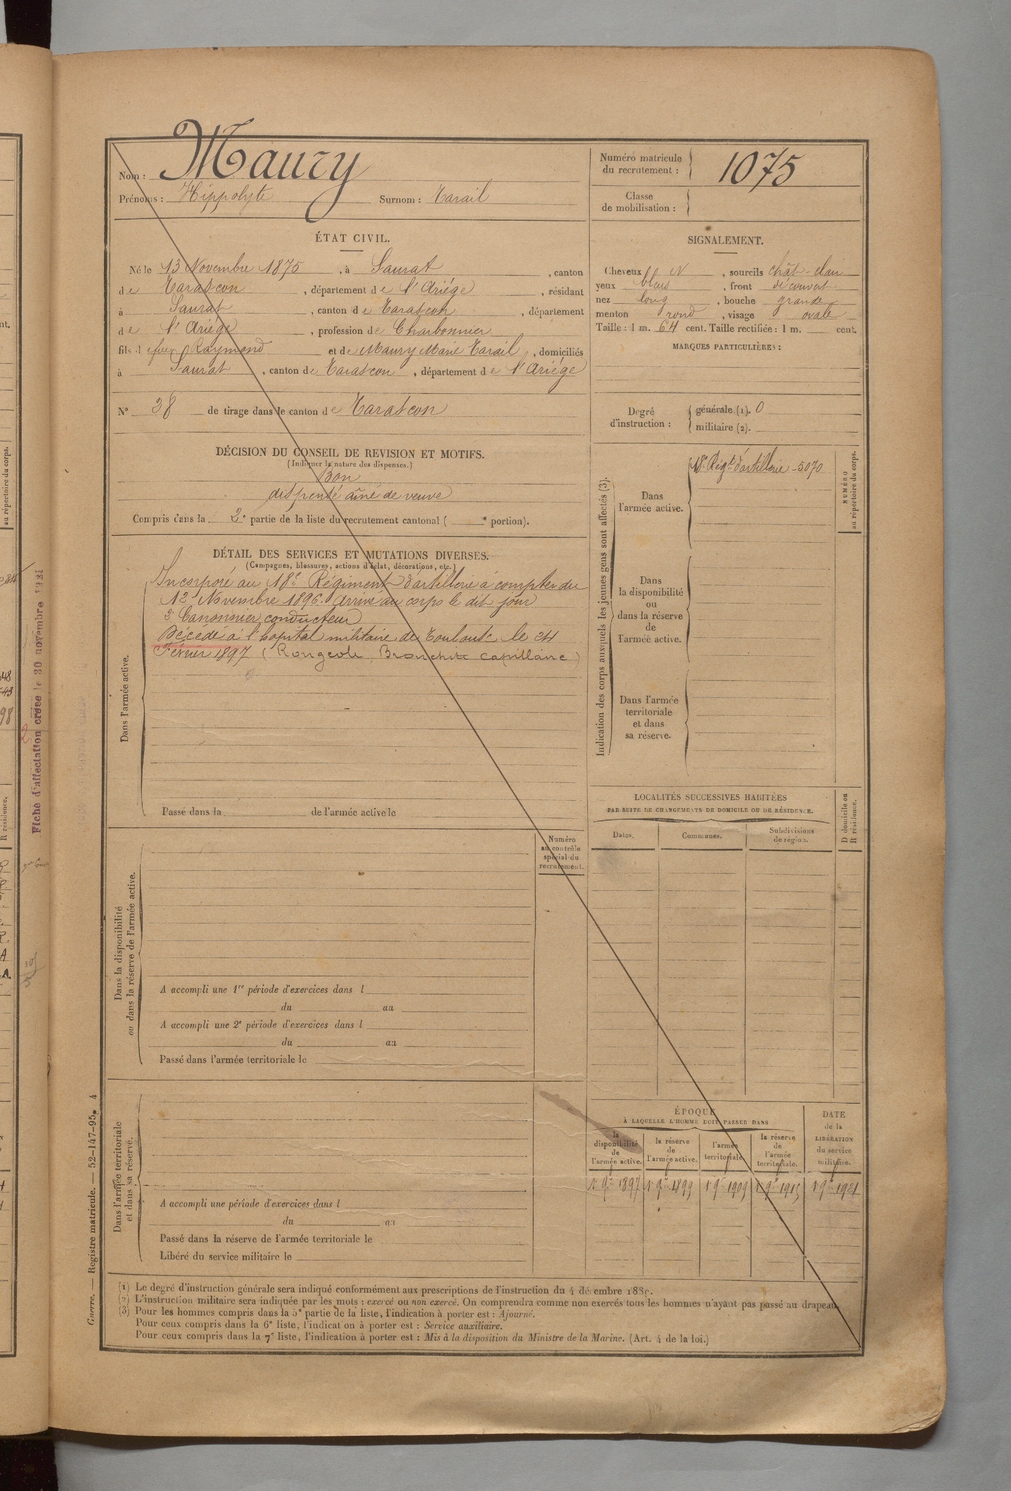 Nom : Maury
Prénoms : Hippolyte Surnom : Tarail
Numéro matricule du recrutement : 1075
Classe de mobilisation :
ÉTAT CIVIL.
Né le 13 Novembre 1875, à Saurat, canton
de Tarascon, département de l'Ariège, résidant
à Saurat, canton de Tarascon, département
de l'Ariège, profession de Charbonnier
fils de feu Raymond et de Maury Marie Tarail, domiciliés
à Saurat, canton de Tarascon, département de l'Ariège
N° 38 de tirage dans le canton de Tarascon
SIGNALEMENT.
Cheveux, sourcils chât-clair
yeux bleus, front découvert
nez long, bouche grande
menton rond, visage ovale
Taille : 1 m. 64 cent. Taille rectifiée : 1 m. cent.
MARQUES PARTICULIÈRES :
Degré d'instruction :
générale (1). 0
militaire (2).
DÉCISION DU CONSEIL DE REVISION ET MOTIFS.
(Indiquer la nature des dispenses.)
Bon
dispensé aîné de veuve
Compris dans la 2e partie de la liste du recrutement cantonal ( e portion).
DÉTAIL DES SERVICES ET MUTATIONS DIVERSES.
(Campagnes, blessures, actions d'éclat, décorations, etc.)
Dans l'armée active.
Incorporé au 18e Régiment d'artillerie à compter du
12 Novembre 1896. Arrivé au corps le dit jour
2e Canonnier conducteur
Décédé à l'hôpital militaire de Toulouse le 24
Février 1897 (Rougeole, Bronchite capillaire)
Passé dans la de l'armée active le
Indication des corps auxquels les jeunes gens sont affectés (3).
Dans l'armée active.
18e Régt d'artillerie - 5070
NUMÉRO au répertoire du corps.
Dans la disponibilité ou dans la réserve de l'armée active.
Dans l'armée territoriale et dans sa réserve.
LOCALITÉS SUCCESSIVES HABITÉES
PAR SUITE DE CHANGEMENTS DE DOMICILE OU DE RÉSIDENCE.
Dates. Communes. Subdivisions de région.
D domicile ou R résidence.
Numéro au contrôle spécial du recrutement.
Dans la disponibilité ou dans la réserve de l'armée active.
A accompli une 1re période d'exercices dans l
du au
A accompli une 2e période d'exercices dans l
du au
Passé dans l'armée territoriale le
Dans l'armée territoriale et dans sa réserve.
A accompli une période d'exercices dans l
du au
Passé dans la réserve de l'armée territoriale le
Libéré du service militaire le
ÉPOQUE
À LAQUELLE L'HOMME DOIT PASSER DANS
la disponibilité de l'armée active. la réserve de l'armée active. l'armée territoriale. la réserve de l'armée territoriale. DATE de la LIBÉRATION du service militaire.
1er 9bre 1897 1er 9bre 1899 1er 9bre 1909 1er 9bre 1915 1er 9bre 1921
(1) Le degré d'instruction générale sera indiqué conformément aux prescriptions de l'instruction du 4 décembre 1889.
(2) L'instruction militaire sera indiquée par les mots : exercé ou non exercé. On comprendra comme non exercés tous les hommes n'ayant pas passé au drapeau.
(3) Pour les hommes compris dans la 5e partie de la liste, l'indication à porter est : Ajourné.
Pour ceux compris dans la 6e liste, l'indication à porter est : Service auxiliaire.
Pour ceux compris dans la 7e liste, l'indication à porter est : Mis à la disposition du Ministre de la Marine. (Art. 4 de la loi.)
Guerre. — Registre matricule. — 52-147-95. 4
Fiche d'affectation créée le 30 novembre
au répertoire du corps.
R résidence.